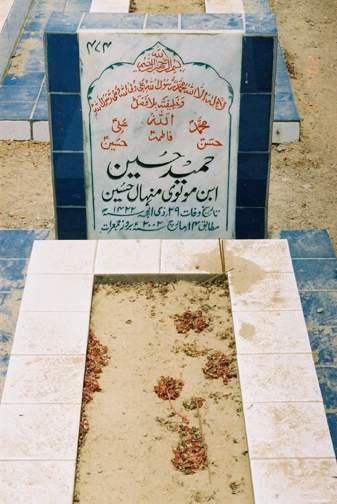 ۴۸۴
بسم اللہ الرحمن الرحیم
لا الہ الا اللہ محمد رسول اللہ علی ولی اللہ وصی رسول اللہ
وخلیفتہ بلا فصل
محمدؐ اللہ علیؑ
حسنؑ فاطمہؑ حسینؑ
حمید حسین
ابن مولوی منہال حسین
تاریخ وفات ۲۹ ذی الحجہ ۱۴۲۲ھ
مطابق ۱۴ مارچ ۲۰۰۲ء بروز جمعرات